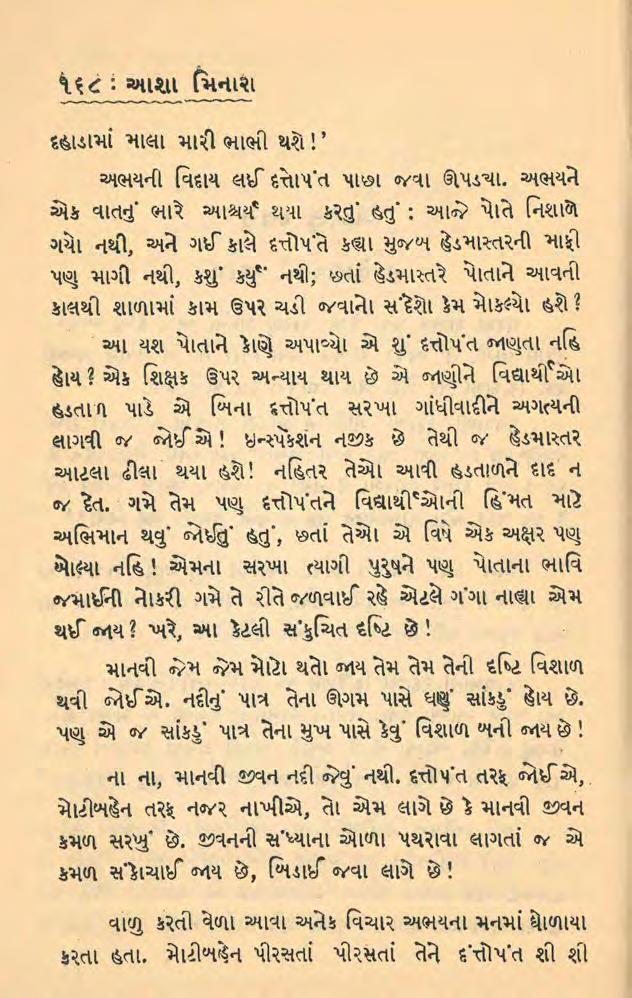 ૧૬૮ : આશા મિનારા
દહાડામાં માલા મારી ભાભી થશે!’
અભયની વિદાય લઈ દત્તોપંત પાછા જવા ઊપડ્યા. અભયને
એક વાતનું ભારે આશ્ચર્ય થયા કરતું હતું : આજે પોતે નિશાળે
ગયો નથી, અને ગઈ કાલે દત્તોપંતે કહ્યા મુજબ હેડમાસ્તરની માફી
પણ માગી નથી, કશું કર્યું નથી; છતાં હેડમાસ્તરે પોતાને આવતી
કાલથી શાળામાં કામ ઉપર ચડી જવાનો સંદેશો કેમ મોકલ્યો હશે?
આ યશ પોતાને કોણે અપાવ્યો એ શું દત્તોપંત જાણતા નહિ
હોય? એક શિક્ષક ઉપર અન્યાય થાય છે એ જાણીને વિદ્યાર્થીઓ
હડતાળ પાડે એ બિના દત્તોપંત સરખા ગાંધીવાદીને અગત્યની
લાગવી જ જોઈએ! ઇન્સ્પેકશન નજીક છે તેથી જ હેડમાસ્તર
આટલા ઢીલા થયા હશે! નહિતર તેઓ આવી હડતાળને દાદ ન
જ દેત. ગમે તેમ પણ દત્તોપંતને વિદ્યાર્થીઓની હિંમત માટે
અભિમાન થવું જોઈતું હતું, છતાં તેઓ એ વિષે એક અક્ષર પણ
બોલ્યા નહિ! એમના સરખા ત્યાગી પુરુષને પણ પોતાના ભાવિ
જમાઈની નોકરી ગમે તે રીતે જળવાઈ રહે એટલે ગંગા નાહ્યા એમ
થઈ જાય? ખરે, આ કેટલી સંકુચિત દષ્ટિ છે!
માનવી જેમ જેમ મોટો થતો જાય તેમ તેમ તેની દષ્ટિ વિશાળ
થવી જોઈએ. નદીનું પાત્ર તેના ઊગમ પાસે ઘણું સાંકડું હોય છે.
પણ એ જ સાંકડું પાત્ર તેના મુખ પાસે કેવું વિશાળ બની જાય છે!
ના ના, માનવી જીવન નદી જેવું નથી. દત્તોપંત તરફ જોઈએ,
મોટીબહેન તરફ નજર નાખીએ, તો એમ લાગે છે કે માનવી જીવન
કમળ સરખું છે. જીવનની સંધ્યાના ઓળા પથરાવા લાગતાં જ એ
કમળ સંકોચાઈ જાય છે, બિડાઈ જવા લાગે છે!
વાળુ કરતી વેળા આવા અનેક વિચાર અભયના મનમાં ઘોળાયા
કરતા હતા. મોટીબહેન પીરસતાં પીરસતાં તેને દત્તોપંત શી શી